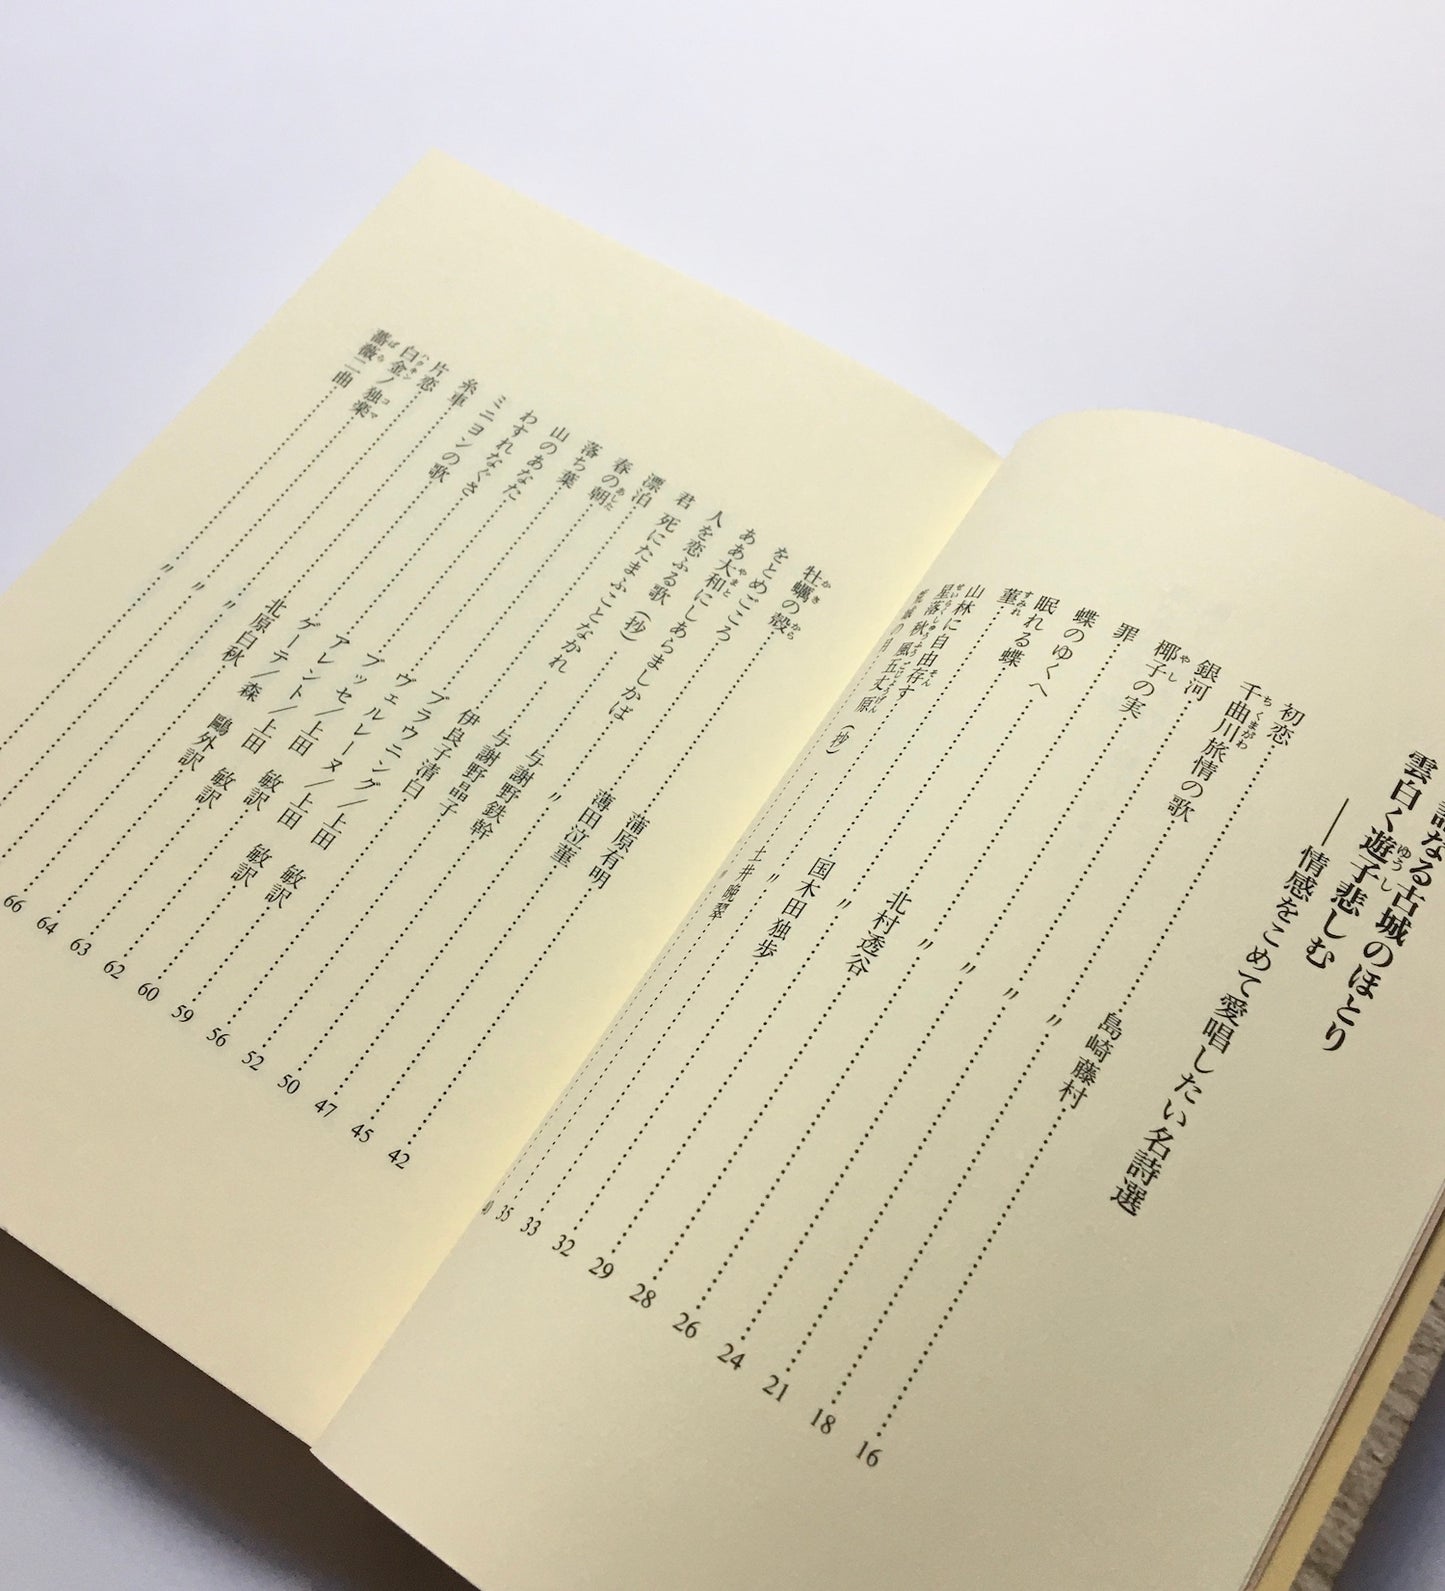 諸なる古城のほとり
雲白く遊子悲しむ
――情感をこめて愛唱したい名詩選
初恋……島崎藤村……16
千曲川旅情の歌……〃……18
銀河……〃……21
椰子の実……〃……24
罪……〃……26
蝶のゆくへ……北村透谷……28
眠れる蝶……〃……29
菫……国木田独歩……32
山林に自由存す……〃……33
星落秋風五丈原（抄）……土井晩翠……35
の月……〃……40
牡蠣の殻……蒲原有明……42
をとめごころ……薄田泣菫……45
ああ大和にしあらましかば……〃……47
人を恋ふる歌（抄）……与謝野鉄幹……50
君死にたまふことなかれ……与謝野晶子……52
漂泊……伊良子清白……56
春の朝……ブラウニング／上田 敏訳……59
落ち葉……ヴェルレーヌ／上田 敏訳……60
山のあなた……ブッセ／上田 敏訳……62
わすれなぐさ……アレント／上田 敏訳……63
ミニヨンの歌……ゲーテ／森 鷗外訳……64
糸車……北原白秋……66
片恋……〃……
白金ノ独楽……〃……
薔薇二曲……〃……